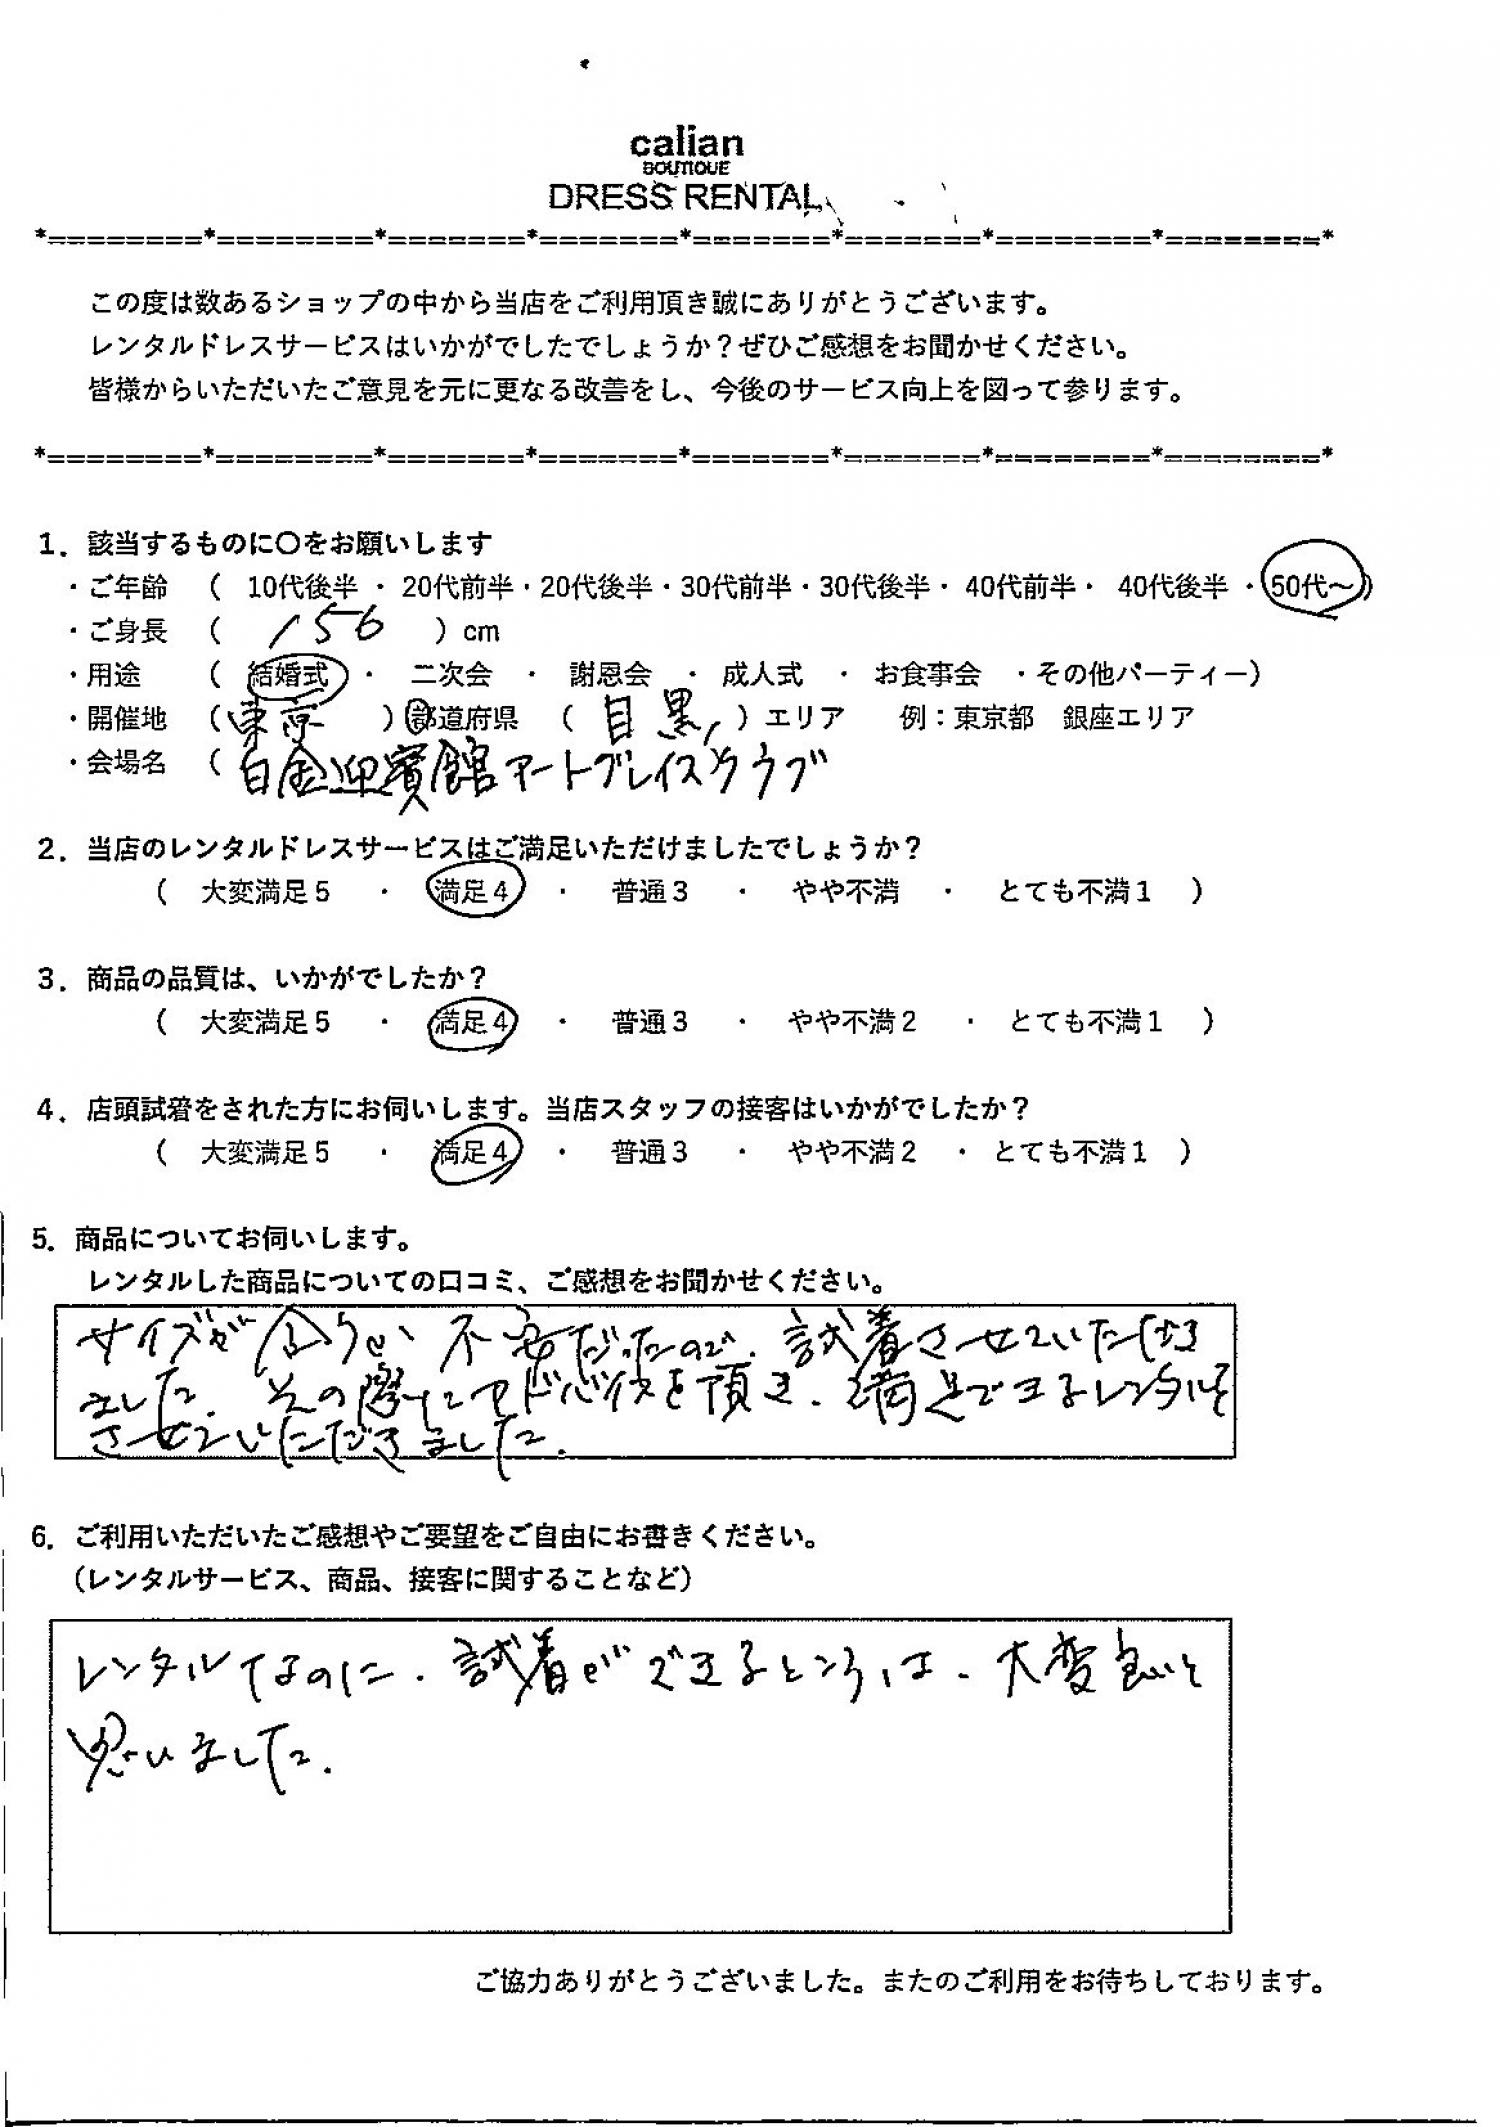 calian
BOUTIQUE
DRESS RENTAL
*========*========*=======*=======*=======*=======*========*========*
この度は数あるショップの中から当店をご利用頂き誠にありがとうございます。
レンタルドレスサービスはいかがでしたでしょうか？ぜひご感想をお聞かせください。
皆様からいただいたご意見を元に更なる改善をし、今後のサービス向上を図って参ります。
*========*========*=======*=======*=======*=======*========*========*
1．該当するものに〇をお願いします
・ご年齢 （ 10代後半 ・ 20代前半・20代後半・30代前半・30代後半・ 40代前半・ 40代後半 ・50代～）
・ご身長 （ 156 ）cm
・用途 （ 結婚式 ・ 二次会 ・ 謝恩会 ・ 成人式 ・ お食事会 ・その他パーティー）
・開催地 （東京 ）都道府県 （ 目黒 ）エリア 例：東京都 銀座エリア
・会場名 （ 白金迎賓館アートグレイスクラブ
2．当店のレンタルドレスサービスはご満足いただけましたでしょうか？
（ 大変満足５ ・ 満足４ ・ 普通３ ・ やや不満 ・ とても不満１ ）
3．商品の品質は、いかがでしたか？
（ 大変満足５ ・ 満足４ ・ 普通３ ・ やや不満２ ・ とても不満１ ）
4．店頭試着をされた方にお伺いします。当店スタッフの接客はいかがでしたか？
（ 大変満足５ ・ 満足４ ・ 普通３ ・ やや不満２ ・ とても不満１ ）
5．商品についてお伺いします。
レンタルした商品についての口コミ、ご感想をお聞かせください。
サイズが合うか不安だったので、試着させていただき
ました。その際にアドバイスを頂き、満足できるレンタルを
させていただきました。
6．ご利用いただいたご感想やご要望をご自由にお書きください。
（レンタルサービス、商品、接客に関することなど）
レンタルなのに、試着ができるところは、大変良いと
思いました。
ご協力ありがとうございました。またのご利用をお待ちしております。